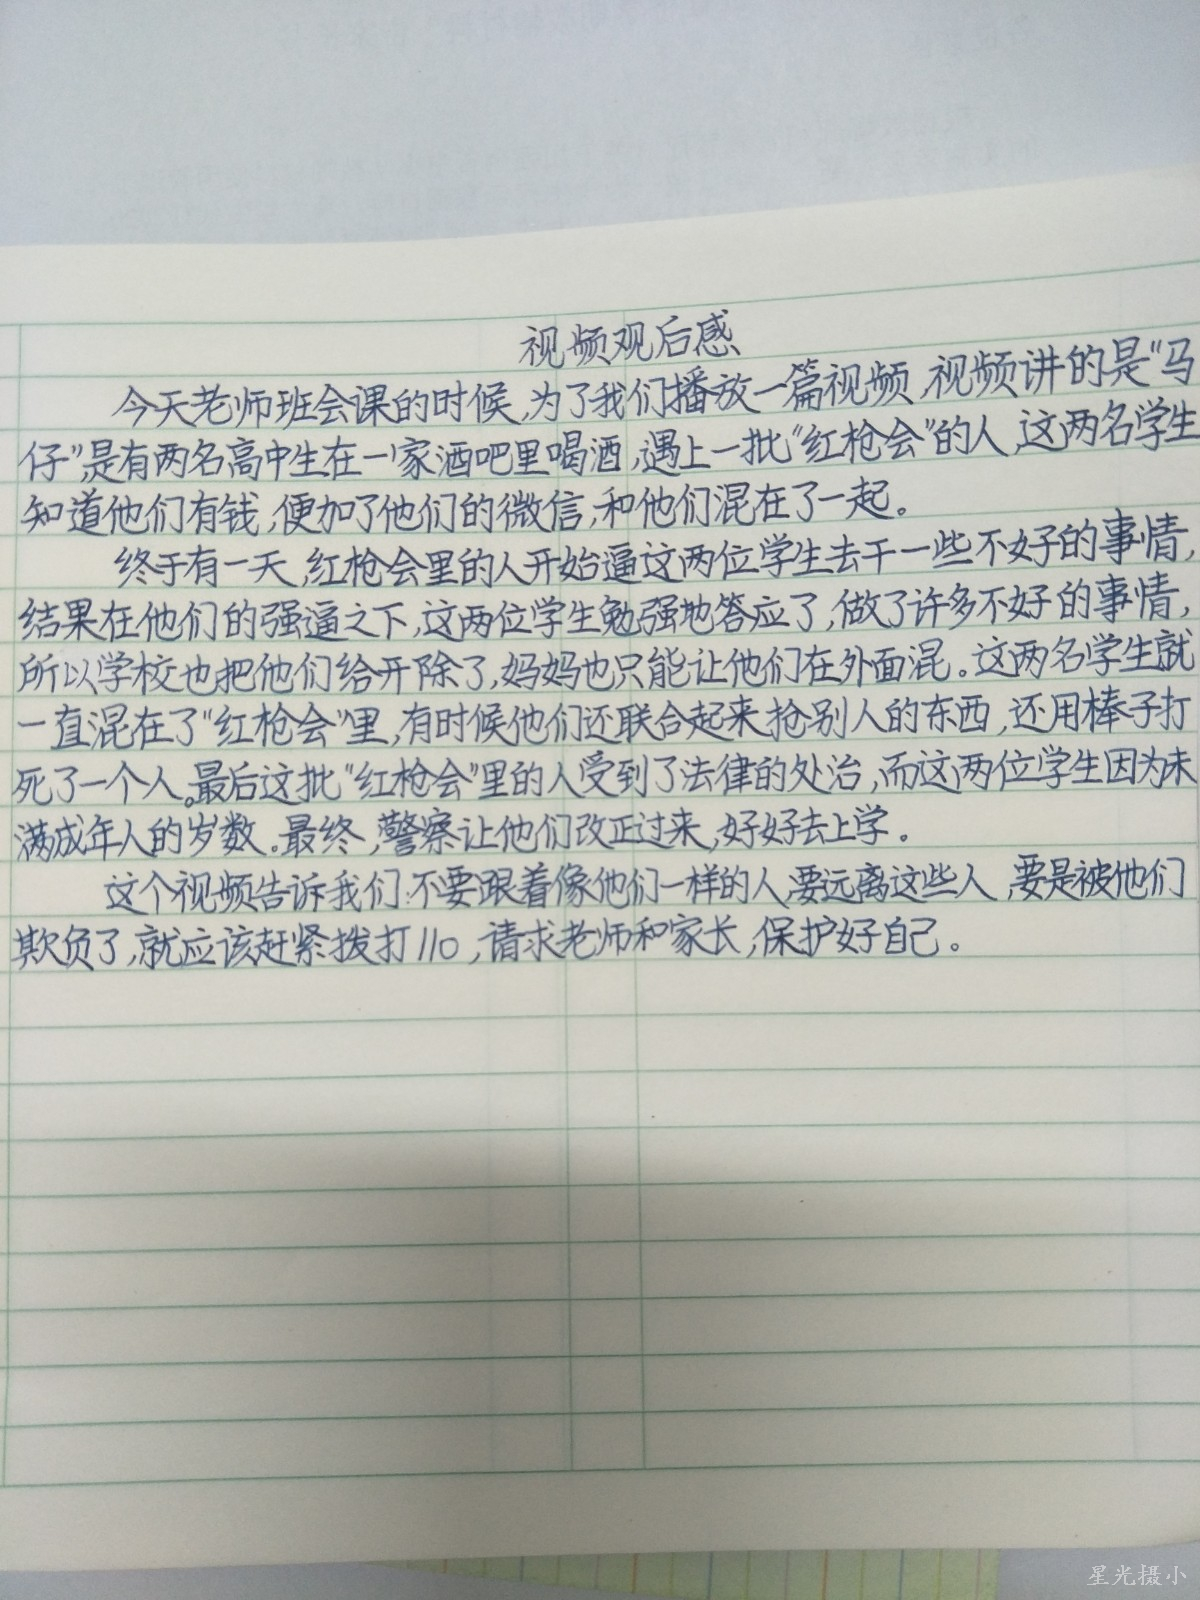 视频观后感
今天老师班会课的时候,为了我们播放一篇视频,视频讲的是“马
仔”,是有两名高中生在一家酒吧里喝酒,遇上一批“红枪会”的人,这两名学生
知道他们有钱,便加了他们的微信,和他们混在了一起。
终于有一天,红枪会里的人开始逼这两位学生去干一些不好的事情,
结果在他们的强逼之下,这两位学生勉强地答应了,做了许多不好的事情,
所以学校也把他们给开除了,妈妈也只能让他们在外面混。这两名学生就
一直混在了“红枪会”里,有时候他们还联合起来抢别人的东西,还用棒子打
死了一个人。最后这批“红枪会”里的人受到了法律的处治,而这两位学生因为未
满成年人的岁数。最终,警察让他们改正过来,好好去上学。
这个视频告诉我们:不要跟着像他们一样的人,要远离这些人,要是被他们
欺负了,就应该赶紧拨打110,请求老师和家长,保护好自己。
星光摄小